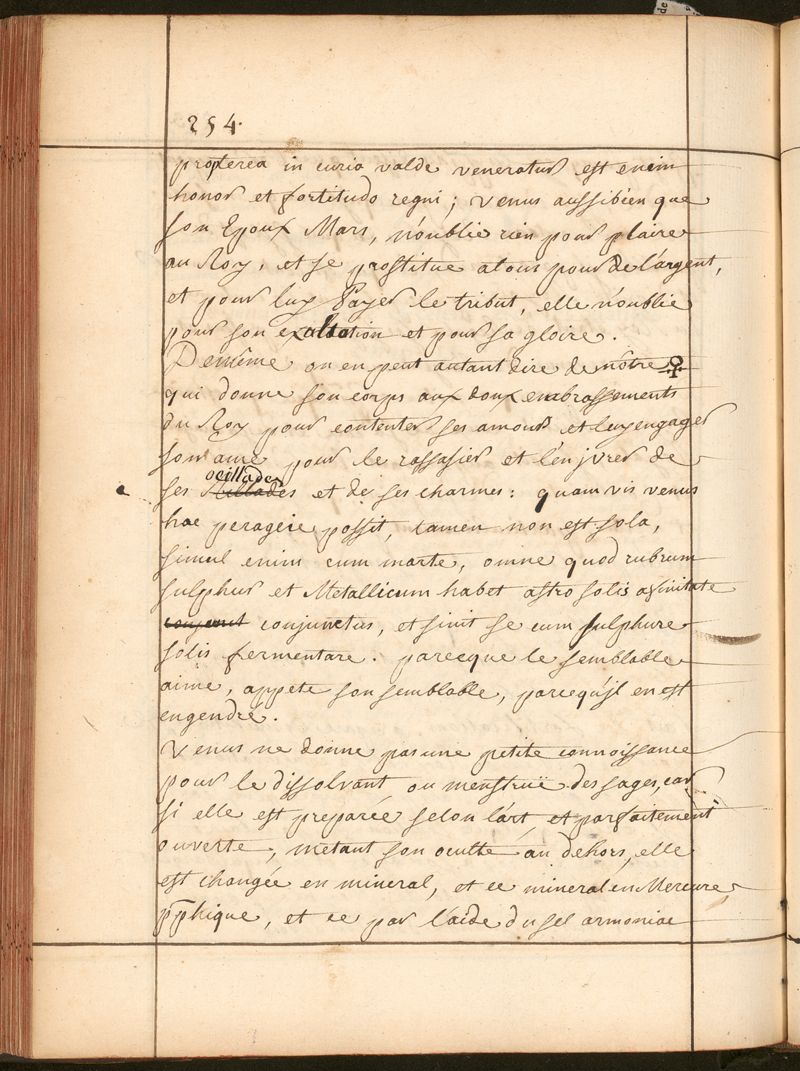 254.
propterea in curia valde veneratur est enim
honor et fortitudo regni; venus aussibien que
son Epoux Mars, n'oublie rien pour plaire
au Roy, et se prostitue atous pour de l'argent,
et pour luy Payer le tribut, elle n'oublie
pour son exaltation et pour sa gloire.
Demême on en peut autant dire de nôtre ♀
qui donne son corps aux doux embrassements
du Roy pour contenter ses amours et luy engager
son ame pour le rassasier et l'enjvrer de
ses oeillades et de ses charmes: quam vis venus
hac peragere possit, tamen non est sola,
simul enim cum marte, omne quod rubrum
sulphur et Metallicum habet astro solis afinitate
conjunctus, et sinit se cum sulphure
solis fermentare. parceque le semblable
aime, appete son semblable, parcequ'jl en est
engendré.
Venus ne donne pas une petite connoissance
pour le dissolvant ou menstruë des sages, car
si elle est preparée selon l'art et parfaitement
ouverte, metant son oculte au dehors, elle
est changée en mineral, et ce mineral en Mercure
pphique, et ce par l'aide du sel armoniac